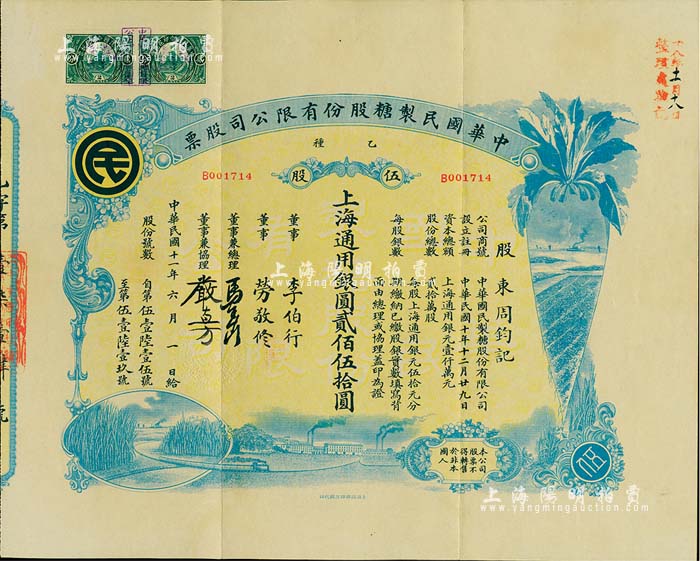 上海陽明拍賣
www.yangmingauction.com
中華國民製糖股份有限公司股票
乙種
B001714
伍股
B001714
民
股東周鈞記
公司商號 中華國民製糖股份有限公司
設立註冊 中華民國十年十二月廿九日
資本總額 上海通用銀元壹仟萬元
股份總數 貳拾萬股
每股銀數 每股上海通用銀元伍拾元分
期繳納已繳股銀實數填寫背
面由總理或協理蓋印為證
上海通用銀圓貳佰伍拾圓
董事 李伯行
董事 勞敬修
董事兼總理
董事兼協理
中華民國十一年六月一日給
股份號數 自第伍壹陸壹伍號
至第伍壹陸壹玖號
本公司
股票不
得轉售
於非本
國人
上海陽明拍賣
www.yangmingauction.com
上海陽明拍賣
www.yangmingauction.com